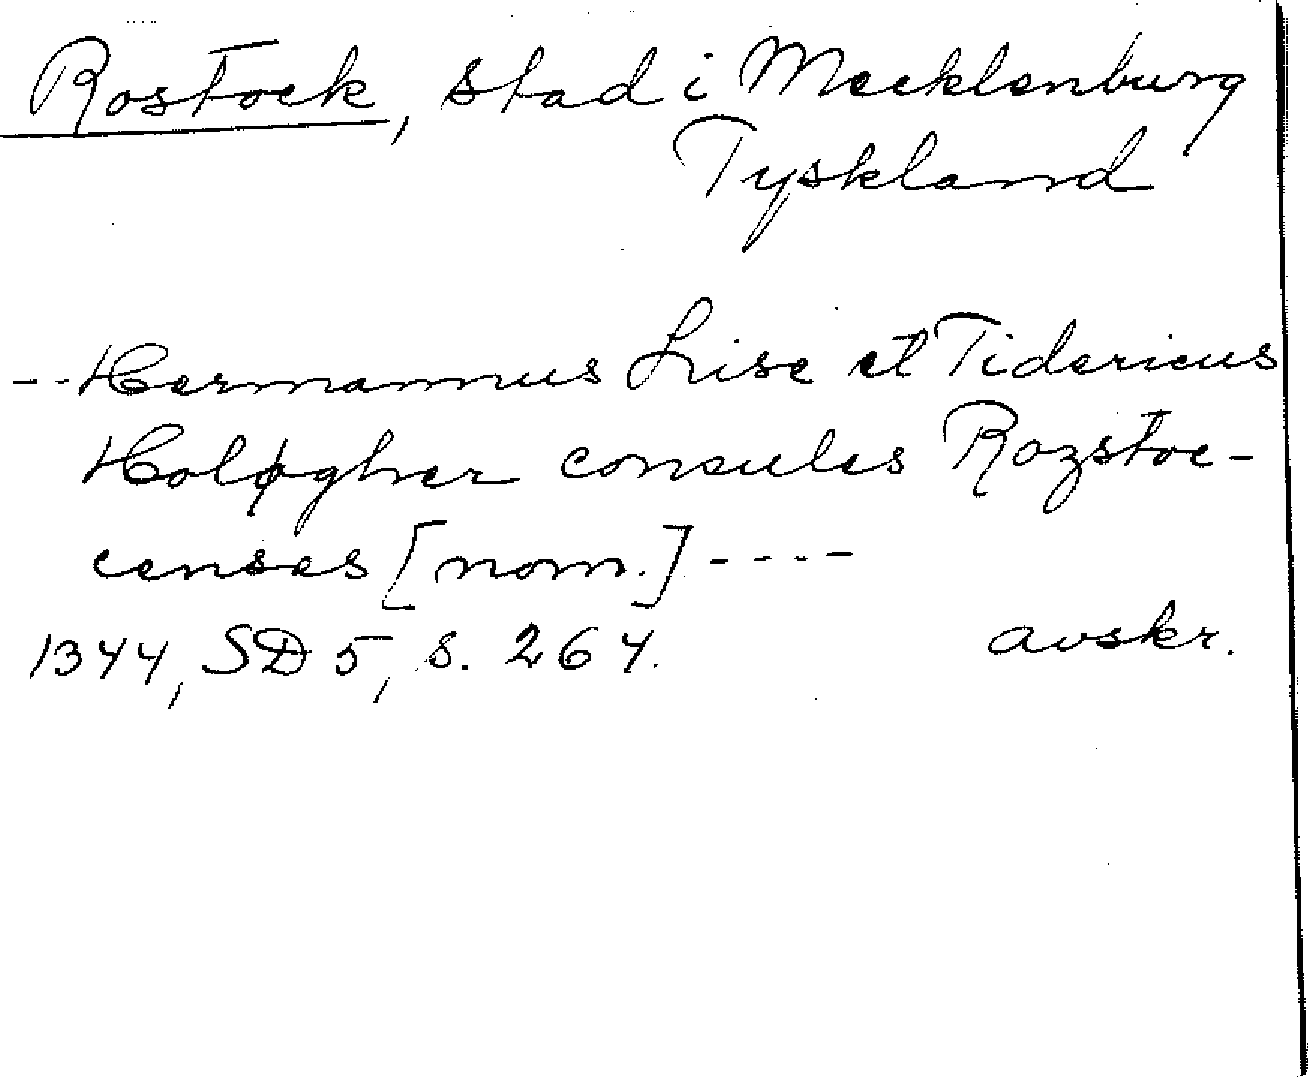 Rostock, stad i Mecklenburg
Tyskland
--Hermannus Lise et Tidericus
consules Rozstoc-
censes [nom.] ----
1344, SD 5, s. 264. avskr.